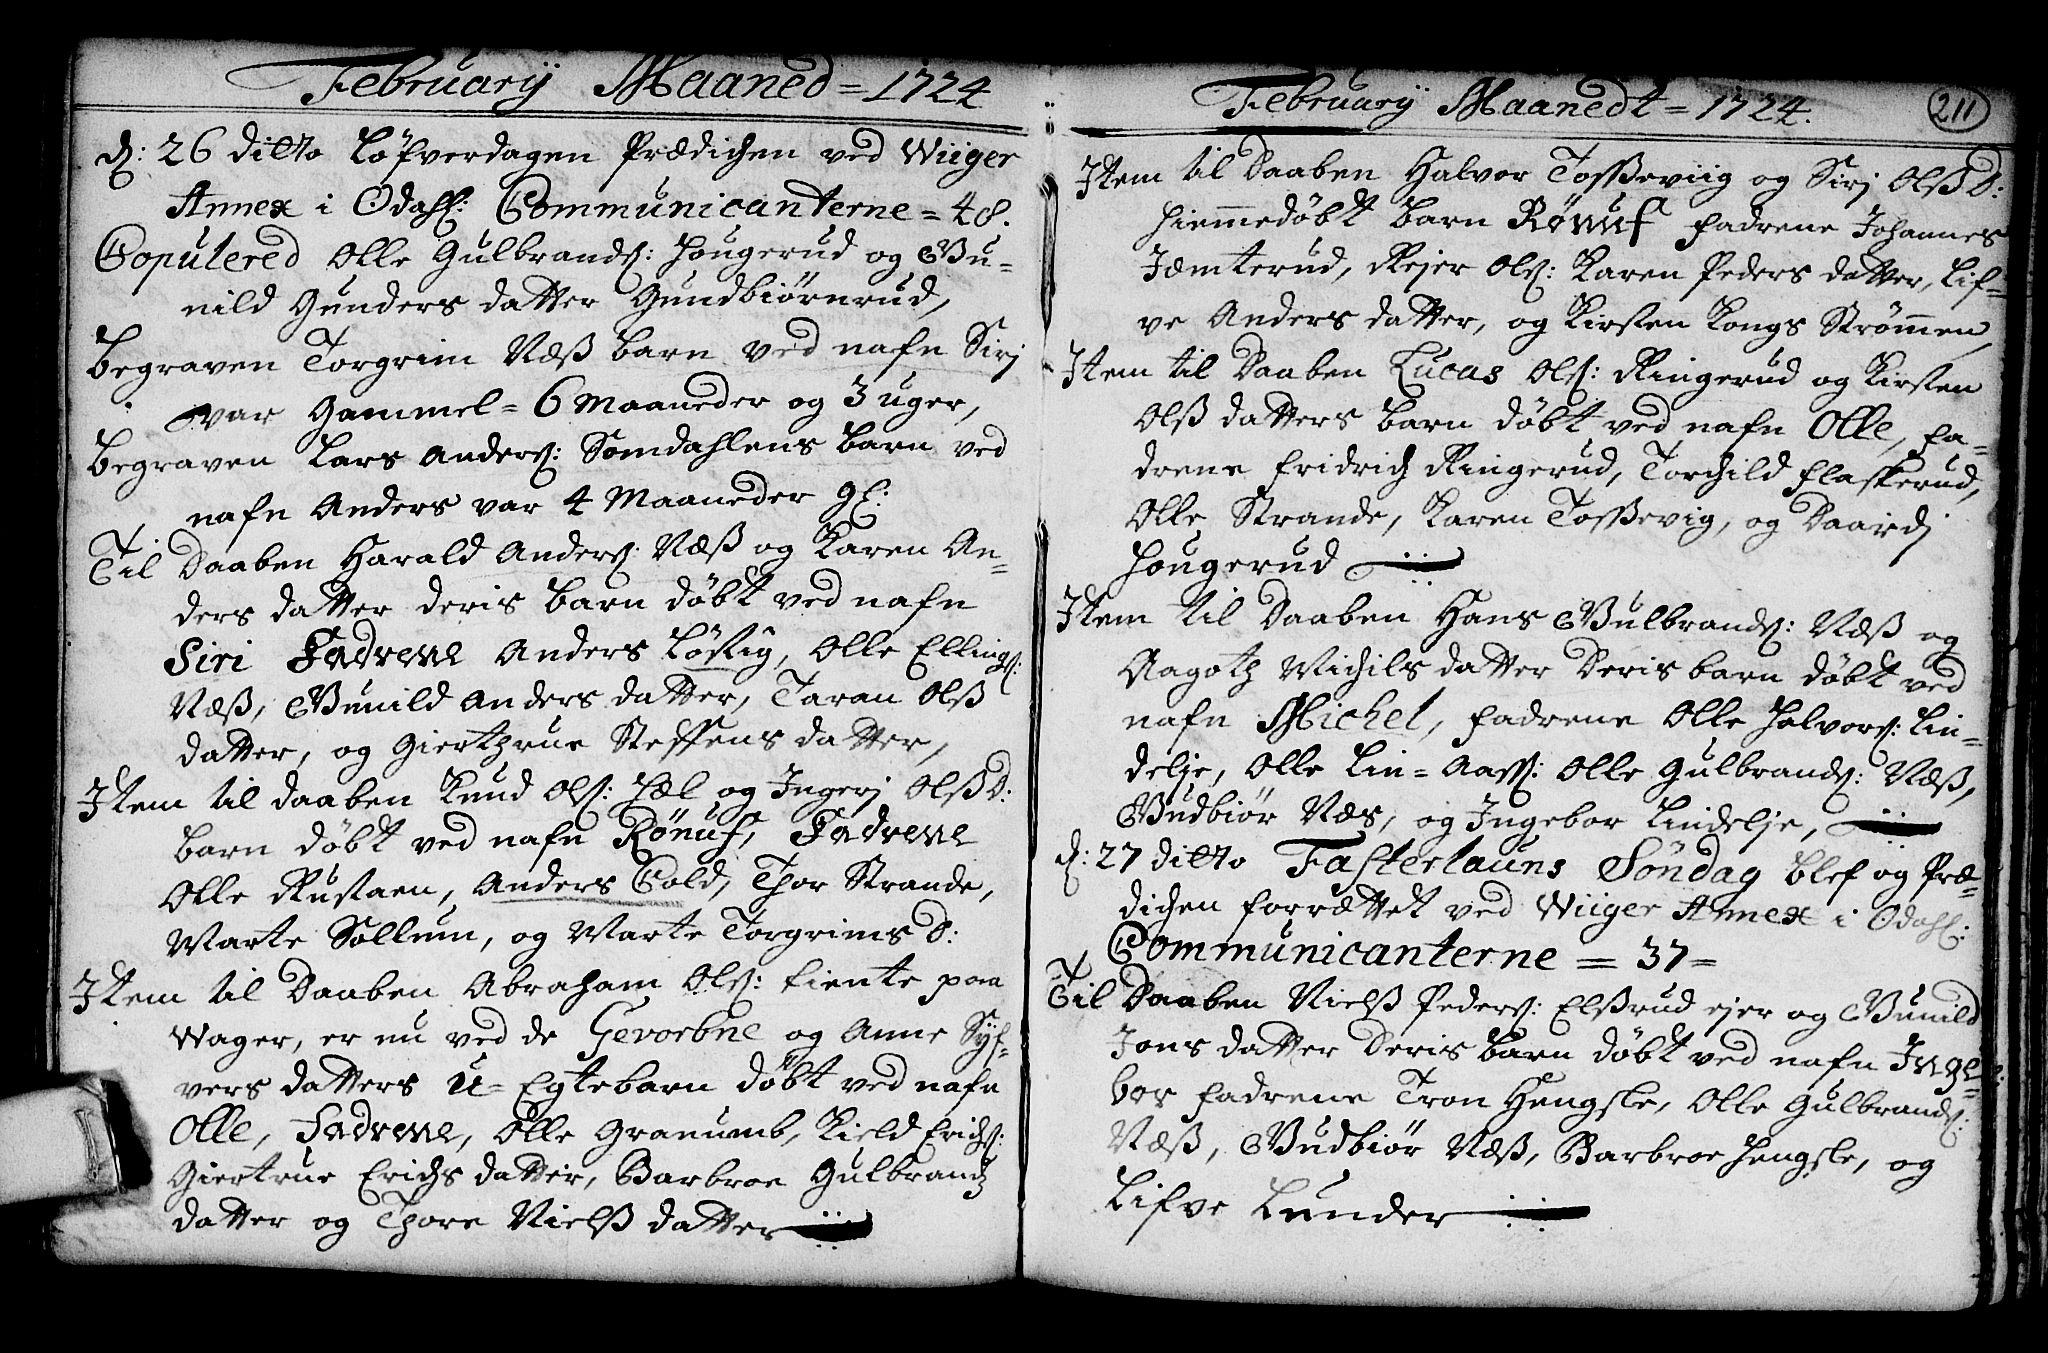 Februarÿ Maaned = 1724
d: 26 ditto Løfverdagen Prædichen ved Wiiger
Annex i Odahl: Communicanterne = 48.
Copulered Olle Gulbrands: Hougerud og Gu-
nild Gunders datter Gundbiørnrud,
Begraven Torgrim Næß barn ved nafn Siri
var Gammel = 6 Maaneder og 3 uger,
Begraven Lars Anders: Somdahlens barn ved
nafn Anders var 4 Maaneder gl:
Til Daaben Harald Anders: Næß og Karen An-
ders datter deris barn døbt ved nafn
Siri Fadrene Anders Løstig, Olle Ellings:
Næß, Gunild Anders datter, Taran Olß
datter, og Gierthrue Steffens datter,
Item til daaben Knud Ols: Hæl og Ingerj Olß D:
barn døbt ved nafn Rønuf, Fadrene
Olle Rustaen, Anders Gold, Thor Strande,
Marte Sollum, og Marte Torgrims D:
Item til Daaben Abraham Ols: tiente paa
Wager, er nu ved de Gevorbne og Anne Syf-
vers datters u-Egtebarn døbt ved nafn
Olle, Fadrene, Olle Granumb, Kield Erichs:
Giertrue Erichs datter, Barbroe Gulbrandz
datter og Thore Nielß datter
Februarÿ Maanedt = 1724.
211
Item til Daaben Halvor Tosßeviig og Sirj Olß D:
hiemmedøbt barn Rønuf fadrene Johannes
Jæmterud, Rejer Ols: Karen Peders datter, Lif-
ve Anders datter, og Kirsten Kongs Strømmen
Item til Daaben Lucas Ols: Ringerud og Kirsten
Olß datters barn døbt ved nafn Olle, fa-
drene Fridrich Ringerud, Torchild Flaskerud,
Olle Strande, Karen Tosßevig, og Daardj
Hougerud
Item til Daaben Hans Gulbrands: Næß og
Aagoth Michils datter Deris barn døbt ved
nafn Michel, fadrene Olle Halvors: Lin-
delje, Olle Lin-Aass: Olle Gulbrands: Næß,
Gudbiør Næs, og Ingebor Lindelje,
d: 27 ditto Fasterlauns Søndag blef og Præ-
dichen forrættet ved Wiiger Annex i Odahl:
Communicanterne = 37 =
Til Daaben Nielß Peders: Elßrud ejer og Gunild
Jons datter Deris barn døbt ved nafn Inge-
bor fadrene Tron Hengsle, Olle Gulbrands:
Næß, Gudbiør Næß, Barbroe Hengsle, og
Lifve Lunder